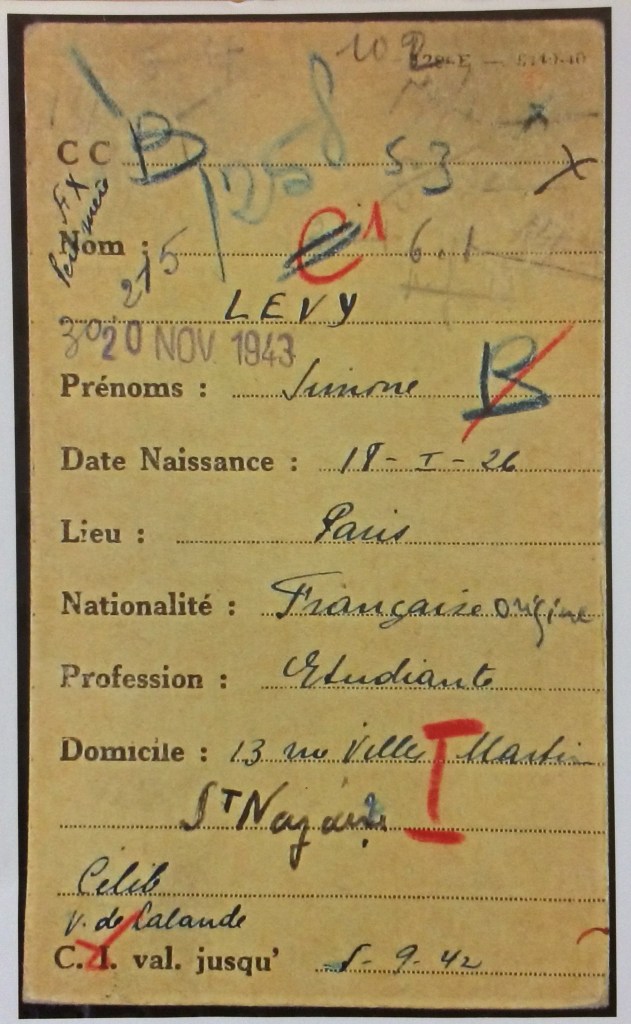 10
CC B 53 X
Nom : C 1
215
LEVY
30 20 NOV 1943
Prénoms : Simone B
Date Naissance : 18 - I - 26
Lieu : Paris
Nationalité : Française origine
Profession : Etudiante
Domicile : 13 rue Ville Martin
I
St Nazaire
Célib
v. de Lalande
C. I. val. jusqu' 5-9-42